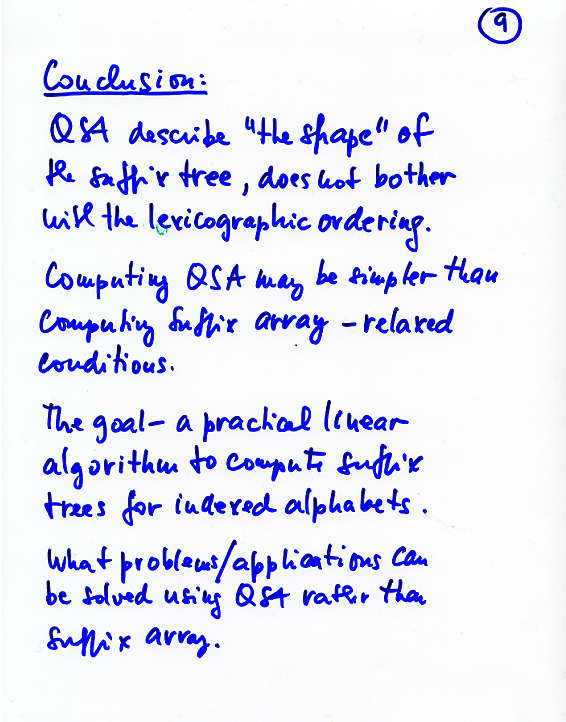 9
Conclusion:
QSA describe "the shape" of
the suffix tree, does not bother
with the lexicographic ordering.
Computing QSA may be simpler than
computing suffix array - relaxed
conditions.
The goal - a practical linear
algorithm to compute suffix
trees for indexed alphabets.
What problems/applications can
be solved using QSA rather than
suffix array.